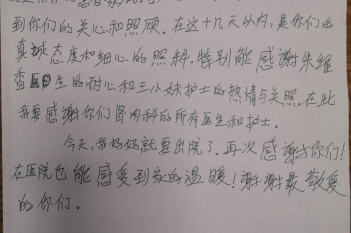 到你们的关心和照顾。在这十几天以内，是你们的
真诚态度和细心的照料。特别能感谢朱维
医生的耐心和王小妹护士的热情与关照。在此
我要感谢你们肾内科的所有医生和护士。
今天，我妈妈就要出院了。再次感谢你们！
在医院也能感受到家的温暖！谢谢最敬爱
的你们。